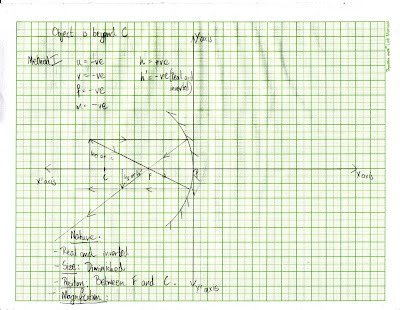 Object is beyond C
Y axis
Method I
u = -ve
h = +ve
v = -ve
h' = -ve (real and inverted)
f = -ve
m = -ve
X' axis
C
F
P
X axis
Nature.
- Real and inverted
- Size: Diminished
- Position: Between F and C.
Y' axis
- Magnification: